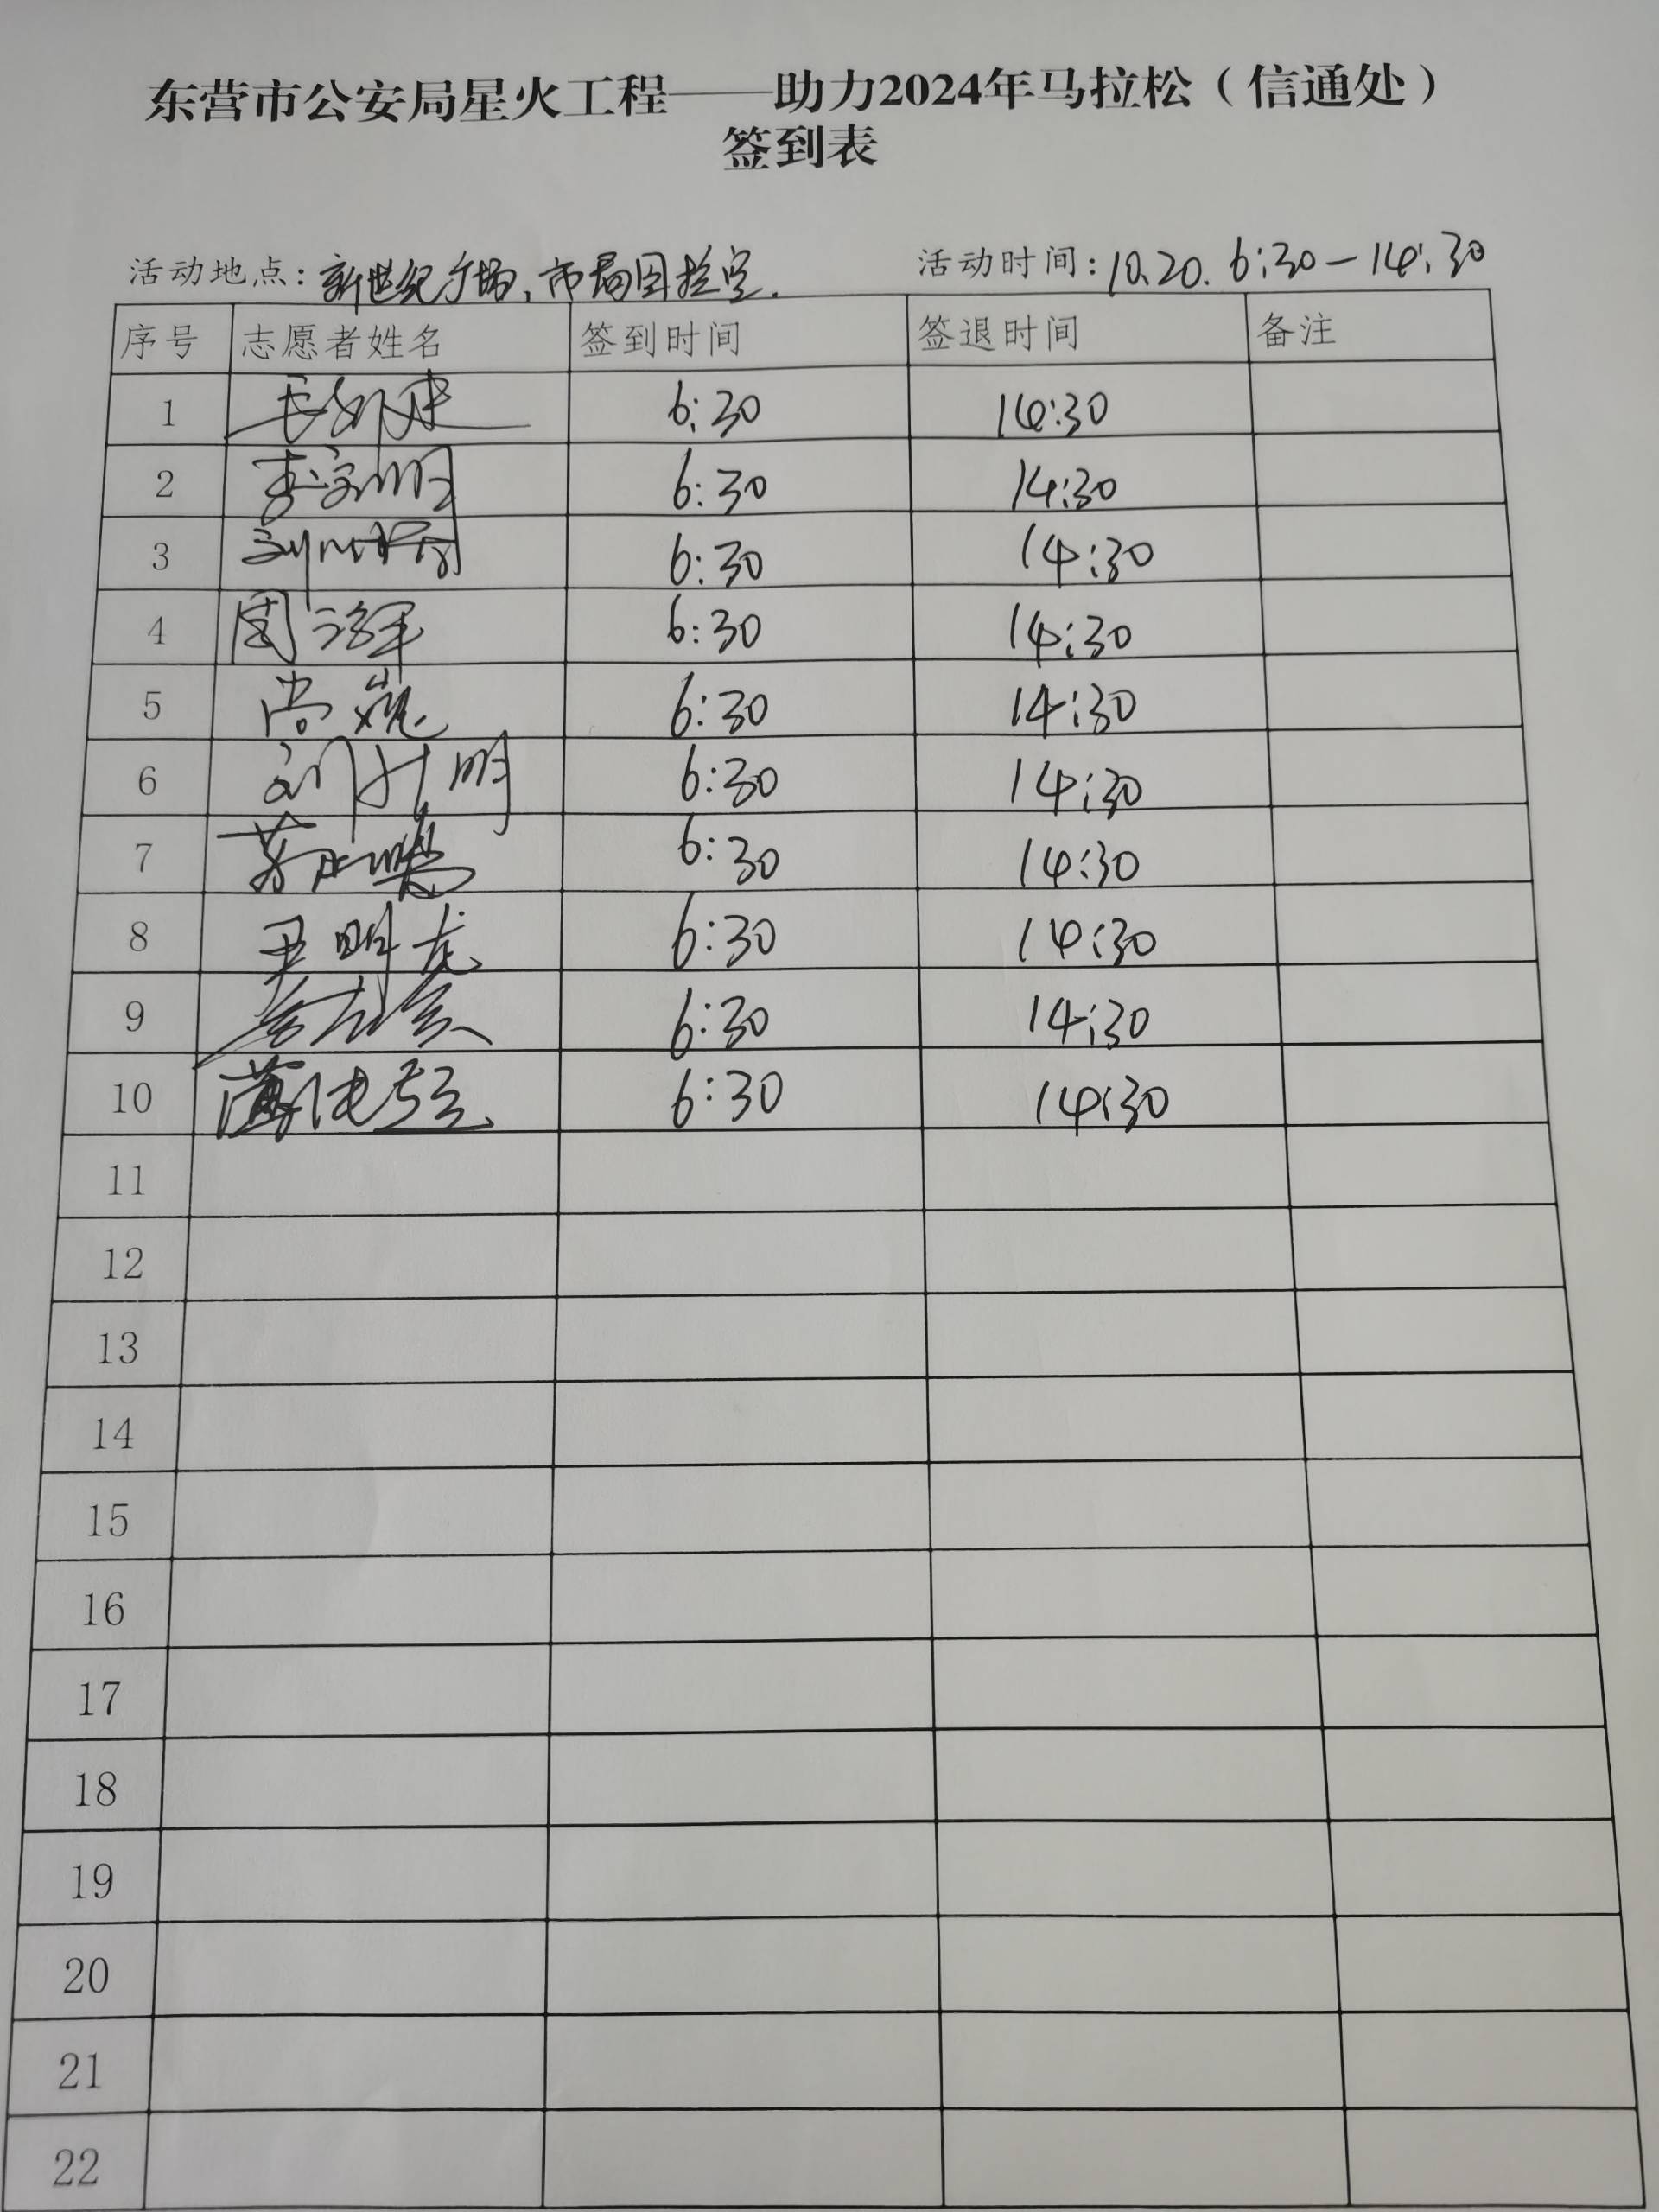 东营市公安局星火工程——助力2024年马拉松（信通处）
签到表
活动地点：新世纪广场，市局图控室. 活动时间：10.20. 6:30-14:30
序号 志愿者姓名 签到时间 签退时间 备注
1 6:30 14:30
2 6:30 14:30
3 6:30 14:30
4 周 6:30 14:30
5 尚巍 6:30 14:30
6 6:30 14:30
7 6:30 14:30
8 尹明龙 6:30 14:30
9 6:30 14:30
10 6:30 14:30
11
12
13
14
15
16
17
18
19
20
21
22